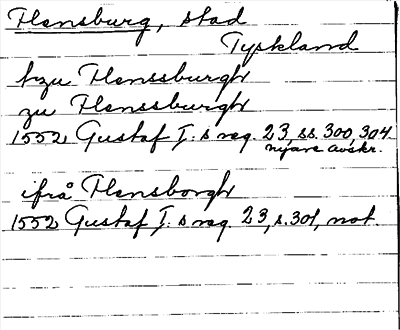 Flensburg, stad
Tyskland
tzu Flenssburgh
zu Flenssburgh
1552 Gustaf I:s reg. 23, ss. 300, 304
nyare avskr.
ifrå Flensborgh
1552 Gustaf I:s reg. 23, s. 301, not.